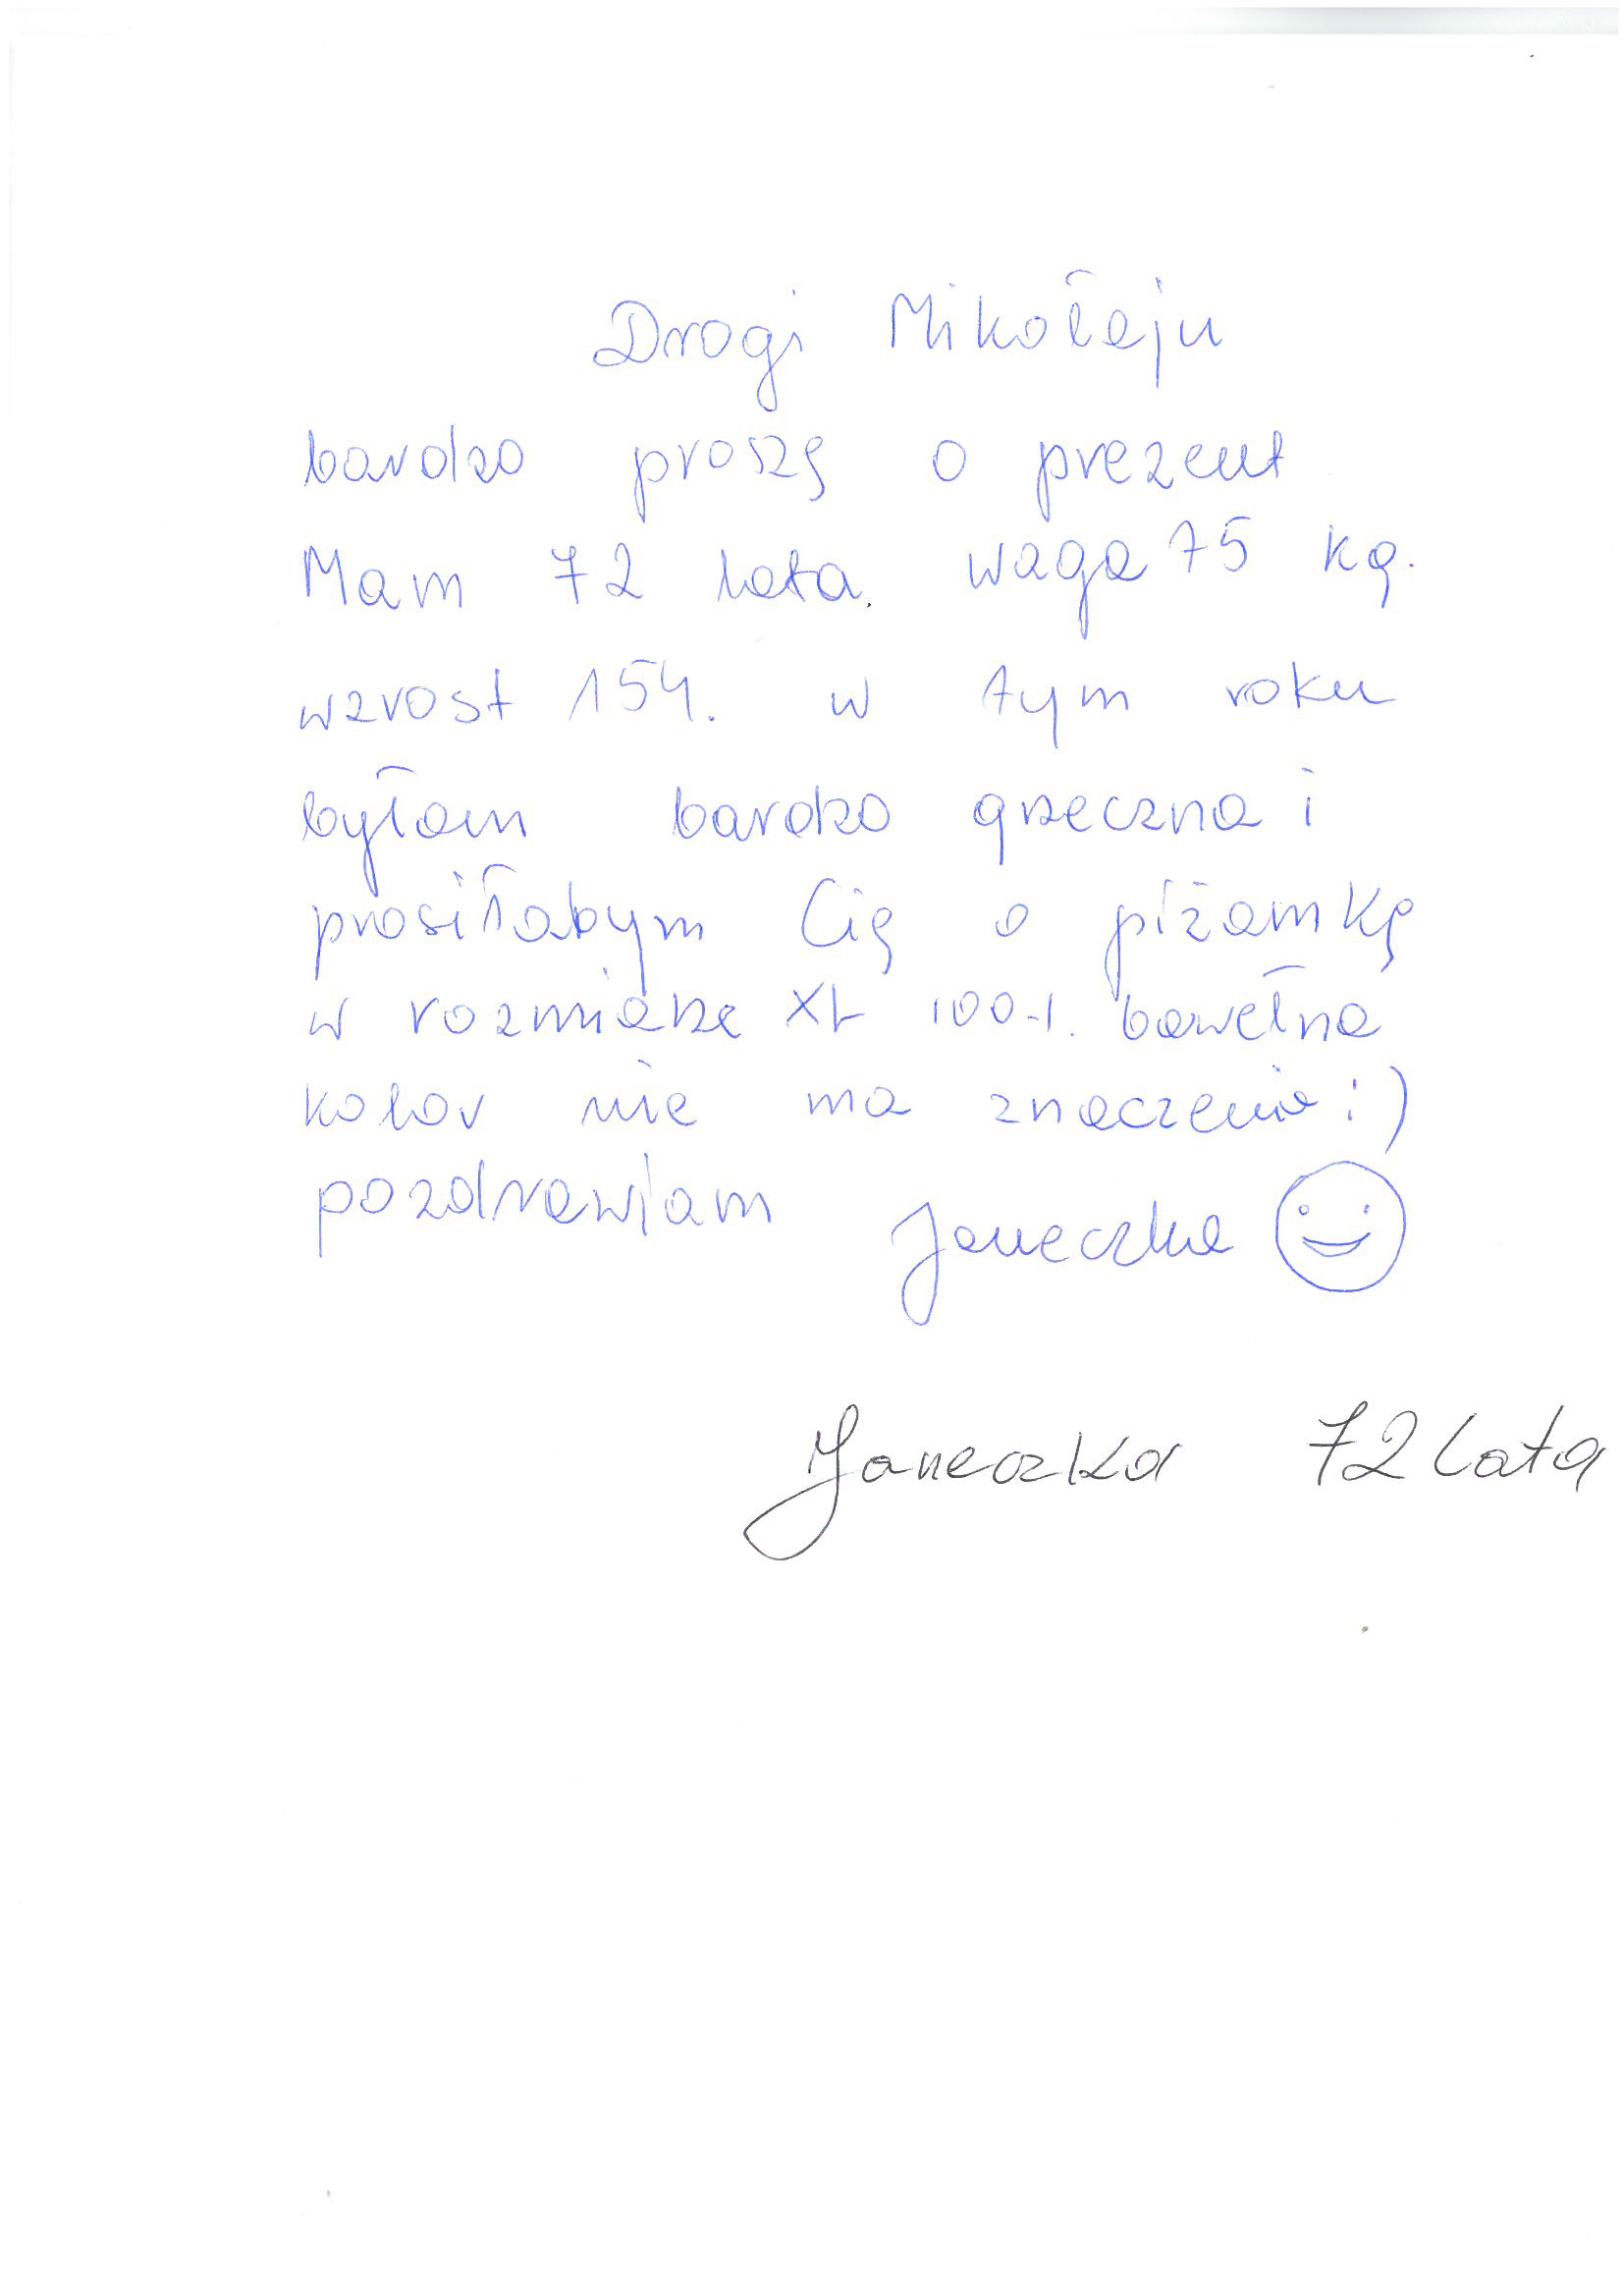 Drogi Mikołaju
bardzo proszę o prezent
Mam 72 lata. waga 75 kg.
wzrost 154. w tym roku
byłam bardzo grzeczna i
prosiłabym Cię o piżamkę
w rozmiarze XL 100-1. bawełna
kolor nie ma znaczenia :)
pozdrawiam Janeczka
Janeczka 72 lata